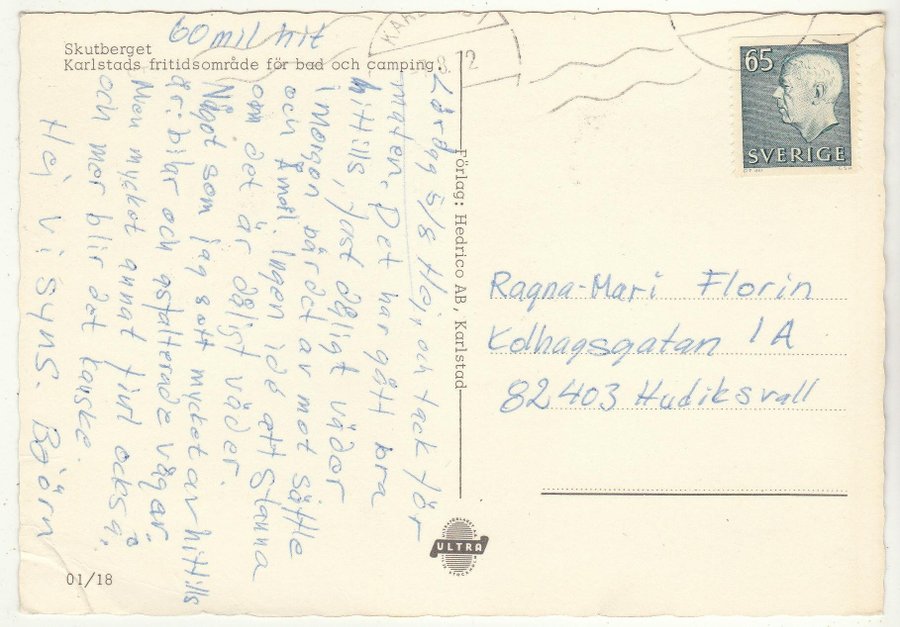 60 mil hit
Skutberget
Karlstads fritidsområde för bad och camping.
Lördag 5/8 Hej och tack för
maten. Det har gått bra
hittills, just dåligt väder
i morgon bär det av mot säffle
och Åmål. Ingen idé att stanna
om det är dåligt väder.
Något som jag sett mycket av hittills
är: bilar och asfalterade vägar.
Men mycket annat fint också,
och mer blir det kanske.
Hej vi syns. Björn
01/18
Förlag: Hedrico AB, Karlstad
ULTRA
65
SVERIGE
Ragna-Mari Florin
Edhagsgatan 1A
82403 Hudiksvall